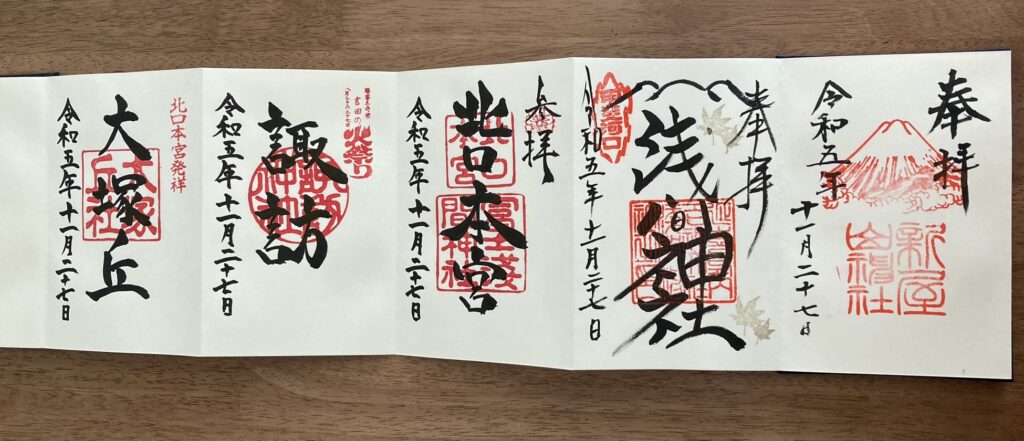 奉拝
新屋
山神社
令和五年
十一月二十七日
奉拝
浅間神社
令和五年十一月二十七日
奉拝
北口本宮
冨士浅
間神社
令和五年十一月二十七日
吉田の火祭り
諏訪
令和五年十一月二十七日
北口本宮発祥
大塚丘
大塚
丘社
令和五年十一月二十七日